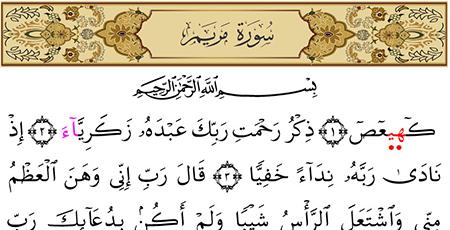 سُورَةُ مَرْيَمَ
بِسْمِ ٱللَّهِ ٱلرَّحْمَٰنِ ٱلرَّحِيمِ
كٓهيعٓصٓ ﴿١﴾ ذِكْرُ رَحْمَتِ رَبِّكَ عَبْدَهُۥ زَكَرِيَّآءَ ﴿٢﴾ إِذْ
نَادَىٰ رَبَّهُۥ نِدَآءً خَفِيًّا ﴿٣﴾ قَالَ رَبِّ إِنِّى وَهَنَ ٱلْعَظْمُ
مِنِّى وَٱشْتَعَلَ ٱلرَّأْسُ شَيْبًا وَلَمْ أَكُنۢ بِدُعَآئِكَ رَبِّ